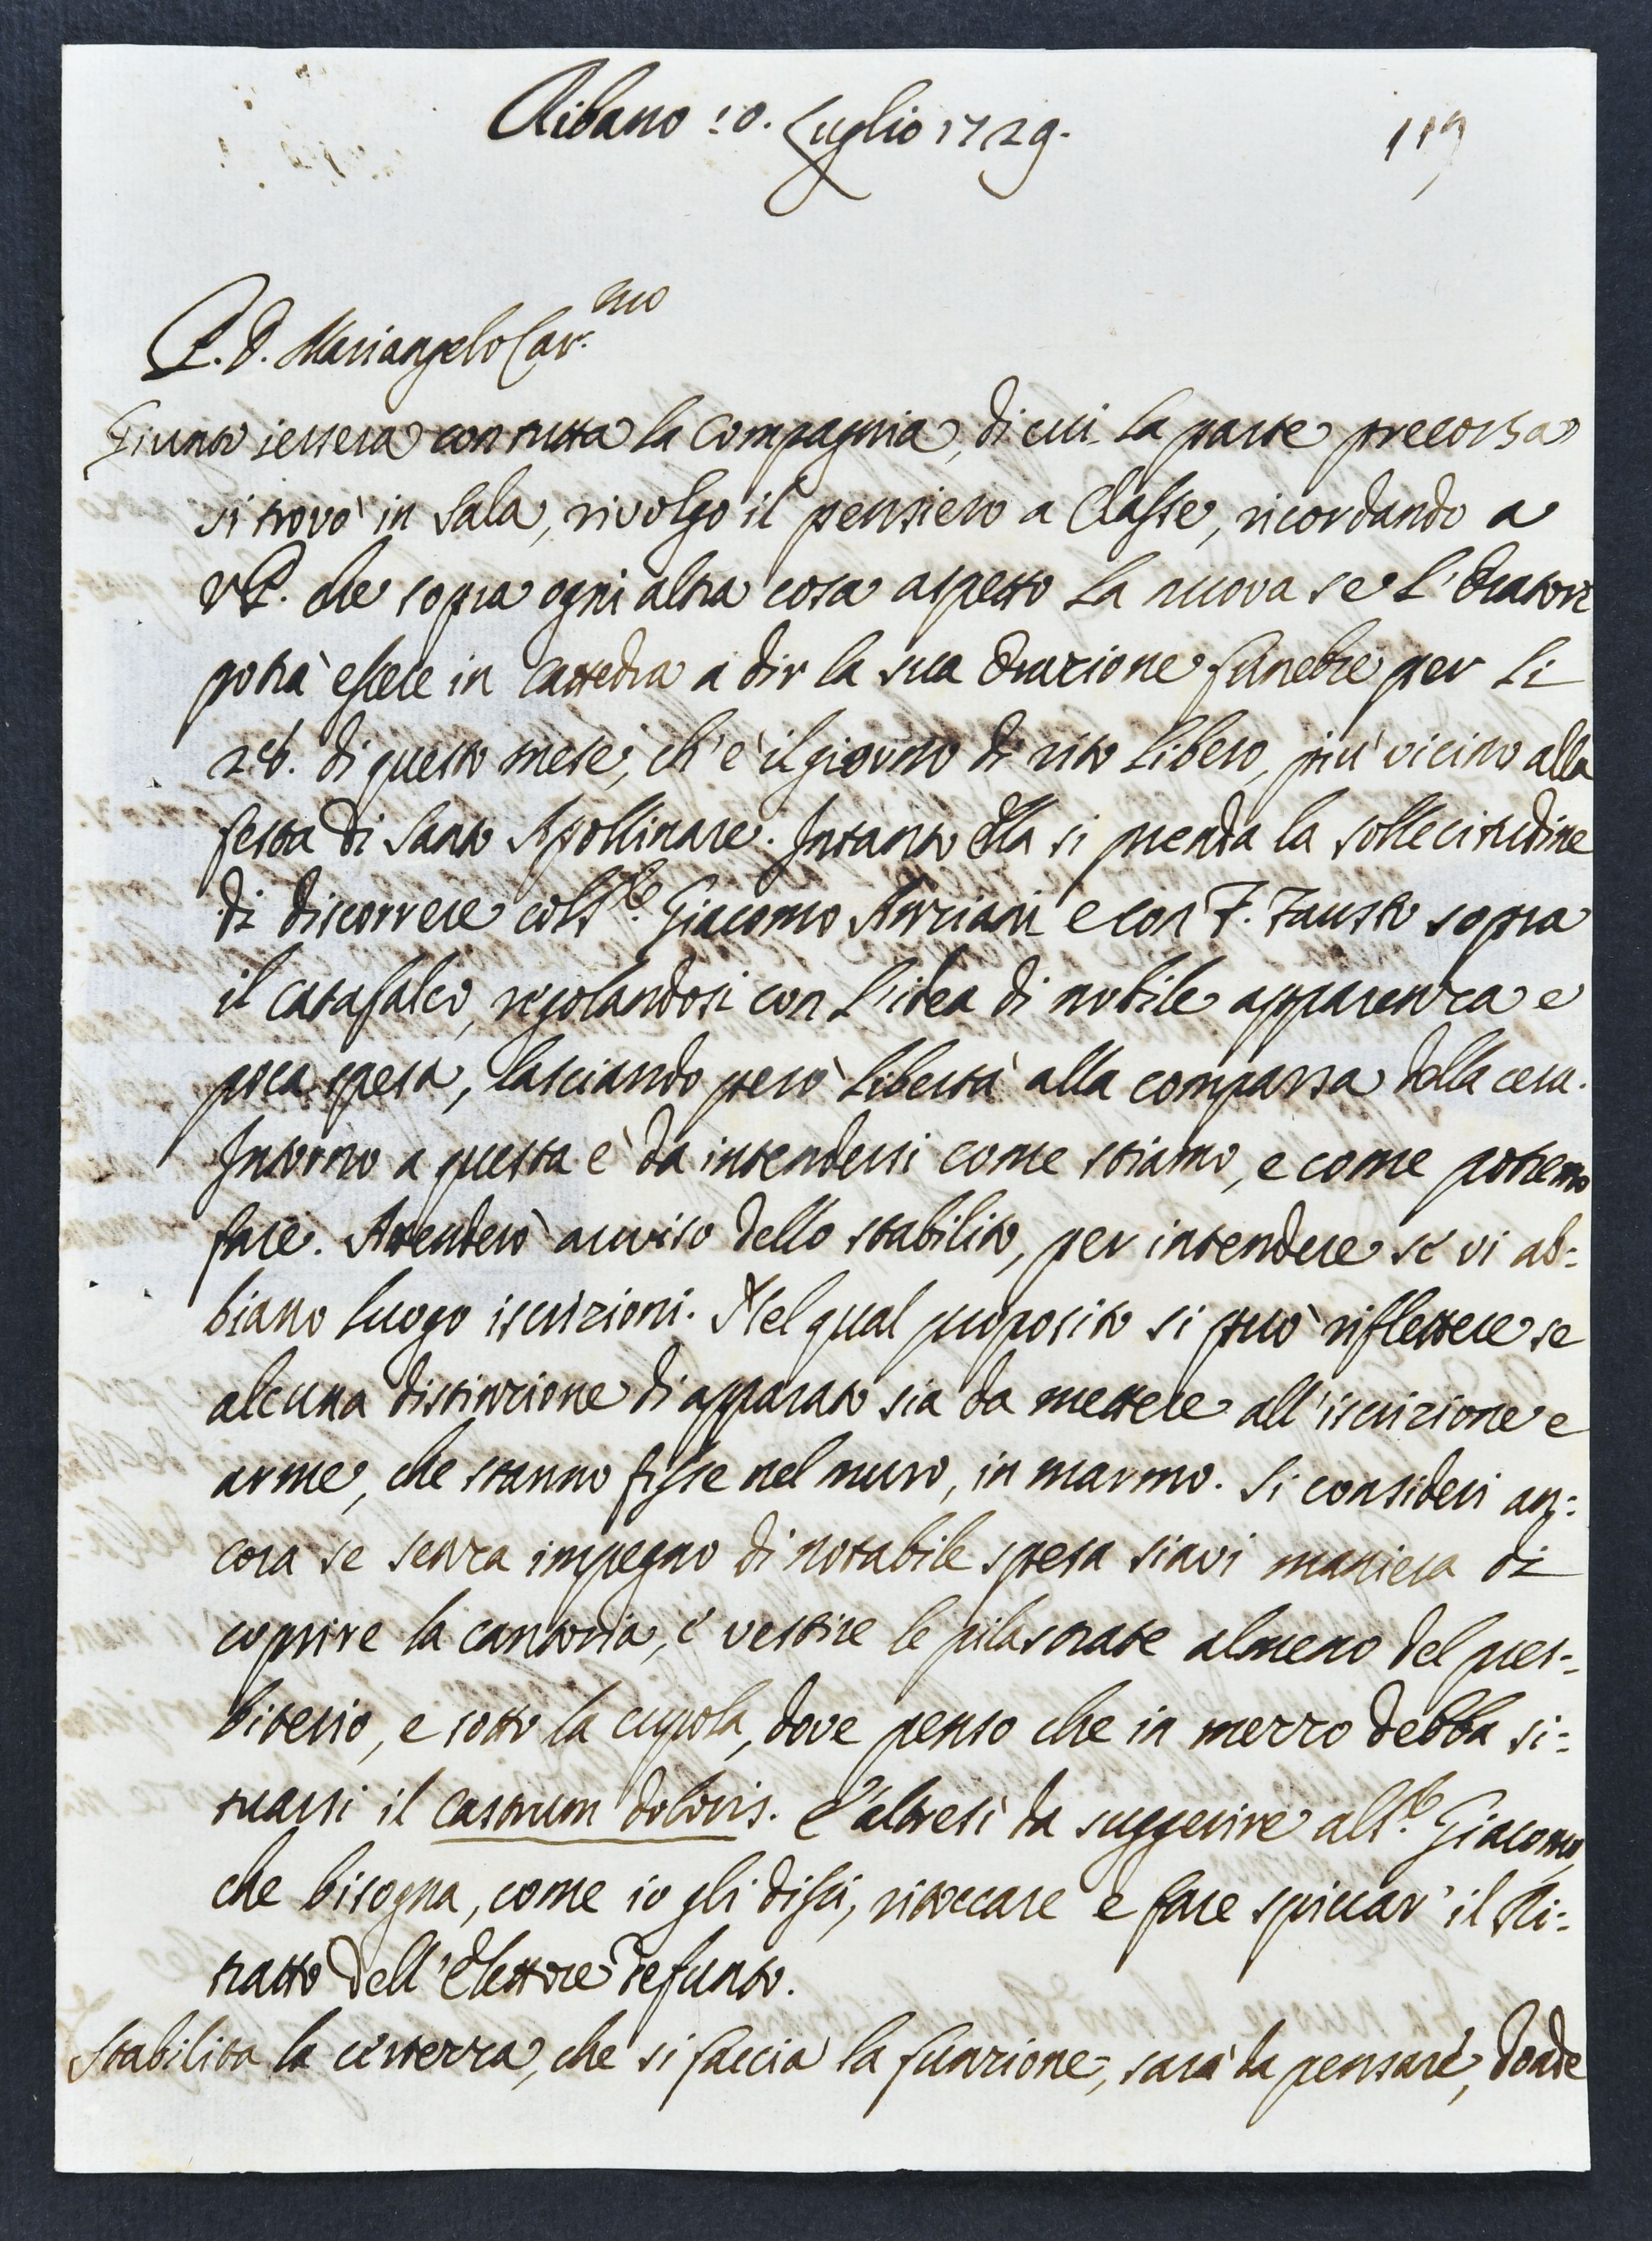 Ribano 10. Luglio 1729.
119
P. D. Mariangelo Car.mo
Giunto iersera con tutta la Compagnia, di cui la parte precorsa
si trovò in Sala, rivolgo il pensiero a Classe, ricordando a
V.P. che sopra ogni altra cosa aspetto la nuova se l'Oratore
potrà essere in Cattedra a dir la sua Orazione funebre per li
26. di questo mese, ch'è il giorno di rito libero, più vicino alla
festa di Santo Apollinare. Intanto Ella si prenda la sollecitudine
di discorrere col Sr. Giacomo Anziani e con F. Fausto sopra
il catafalco, regolandosi con l'idea di nobile apparenza e
poca spesa, lasciando però libertà alla comparsa della cera.
Intorno a questa è da intendersi come stiamo, e come potremo
fare. Attenderò avviso dello stabilito, per intendere se vi ab=
biano luogo iscrizioni. Nel qual proposito si può riflettere se
alcuna distinzione di apparato sia da mettere all'iscrizione e
arme, che stanno fisse nel muro, in marmo. Si consideri an=
cora se senza impegno di notabile spesa siavi maniera di
coprire la cantoria, e vestire le pilastrate almeno del pres=
biterio, e sotto la cupola, dove penso che in mezzo debba si=
tuarsi il Castrum doloris. È altresì da suggerire al Sr. Giacomo,
che bisogna, come io gli dissi, ritoccare e fare spiccar' il Ri=
tratto dell'Elettore defunto.
Stabilita la certezza, che si faccia la funzione, sarà da pensare, donde